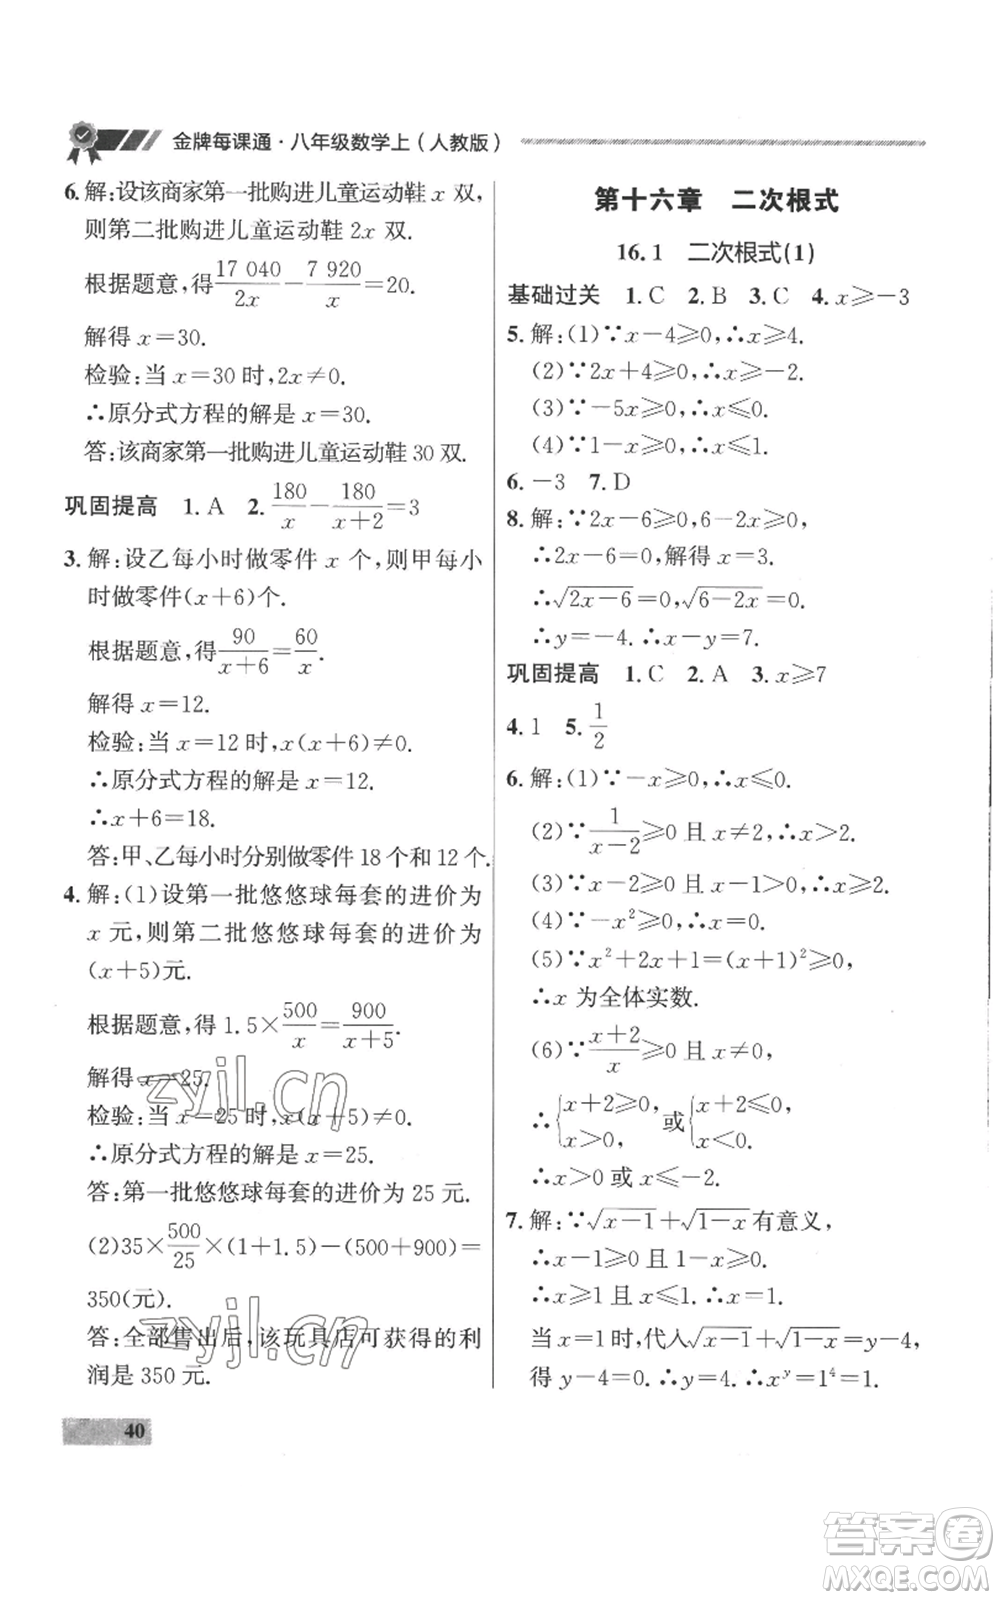 金牌每课通·八年级数学上(人教版)
6.解:设该商家第一批购进儿童运动鞋 x 双,
则第二批购进儿童运动鞋 2x 双.
根据题意,得17 040/2x-7 920/x=20.
解得 x=30.
检验:当 x=30 时,2x≠0.
∴原分式方程的解是 x=30.
答:该商家第一批购进儿童运动鞋 30 双.
巩固提高 1. A 2. 180/x-180/(x+2)=3
3.解:设乙每小时做零件 x 个,则甲每小
时做零件(x+6)个.
根据题意,得90/(x+6)=60/x.
解得 x=12.
检验:当 x=12 时,x(x+6)≠0.
∴原分式方程的解是 x=12.
∴x+6=18.
答:甲、乙每小时分别做零件 18 个和 12 个.
4.解:(1)设第一批悠悠球每套的进价为
x 元,则第二批悠悠球每套的进价为
(x+5)元.
根据题意,得 1.5×500/x=900/(x+5).
解得 x=25.
检验:当 x=25 时,x(x+5)≠0.
∴原分式方程的解是 x=25.
答:第一批悠悠球每套的进价为 25 元.
(2)35×500/25×(1+1.5)-(500+900)=
350(元).
答:全部售出后,该玩具店可获得的利
润是 350 元.
zyjl.cn
zyjl.cn
40
第十六章 二次根式
16.1 二次根式(1)
基础过关 1. C 2. B 3. C 4. x≥-3
5.解:(1)∵x-4≥0,∴x≥4.
(2)∵2x+4≥0,∴x≥-2.
(3)∵-5x≥0,∴x≤0.
(4)∵1-x≥0,∴x≤1.
6. -3 7. D
8.解:∵2x-6≥0,6-2x≥0,
∴2x-6=0,解得 x=3.
∴√(2x-6)=0,√(6-2x)=0.
∴y=-4. ∴x-y=7.
巩固提高 1. C 2. A 3. x≥7
4. 1 5. 1/2
6.解:(1)∵-x≥0,∴x≤0.
(2)∵1/(x-2)≥0 且 x≠2,∴x>2.
(3)∵x-2≥0 且 x-1>0,∴x≥2.
(4)∵-x²≥0,∴x=0.
(5)∵x²+2x+1=(x+1)²≥0,
∴x 为全体实数.
(6)∵(x+2)/x≥0 且 x≠0,
∴{x+2≥0, x>0 或{x+2≤0, x<0.
∴x>0 或 x≤-2.
7.解:∵√(x-1)+√(1-x)有意义,
∴x-1≥0 且 1-x≥0.
∴x≥1 且 x≤1. ∴x=1.
当 x=1 时,代入√(x-1)+√(1-x)=y-4,
得 y-4=0. ∴y=4. ∴xʸ=1⁴=1.
答案圈
MXQE.COM